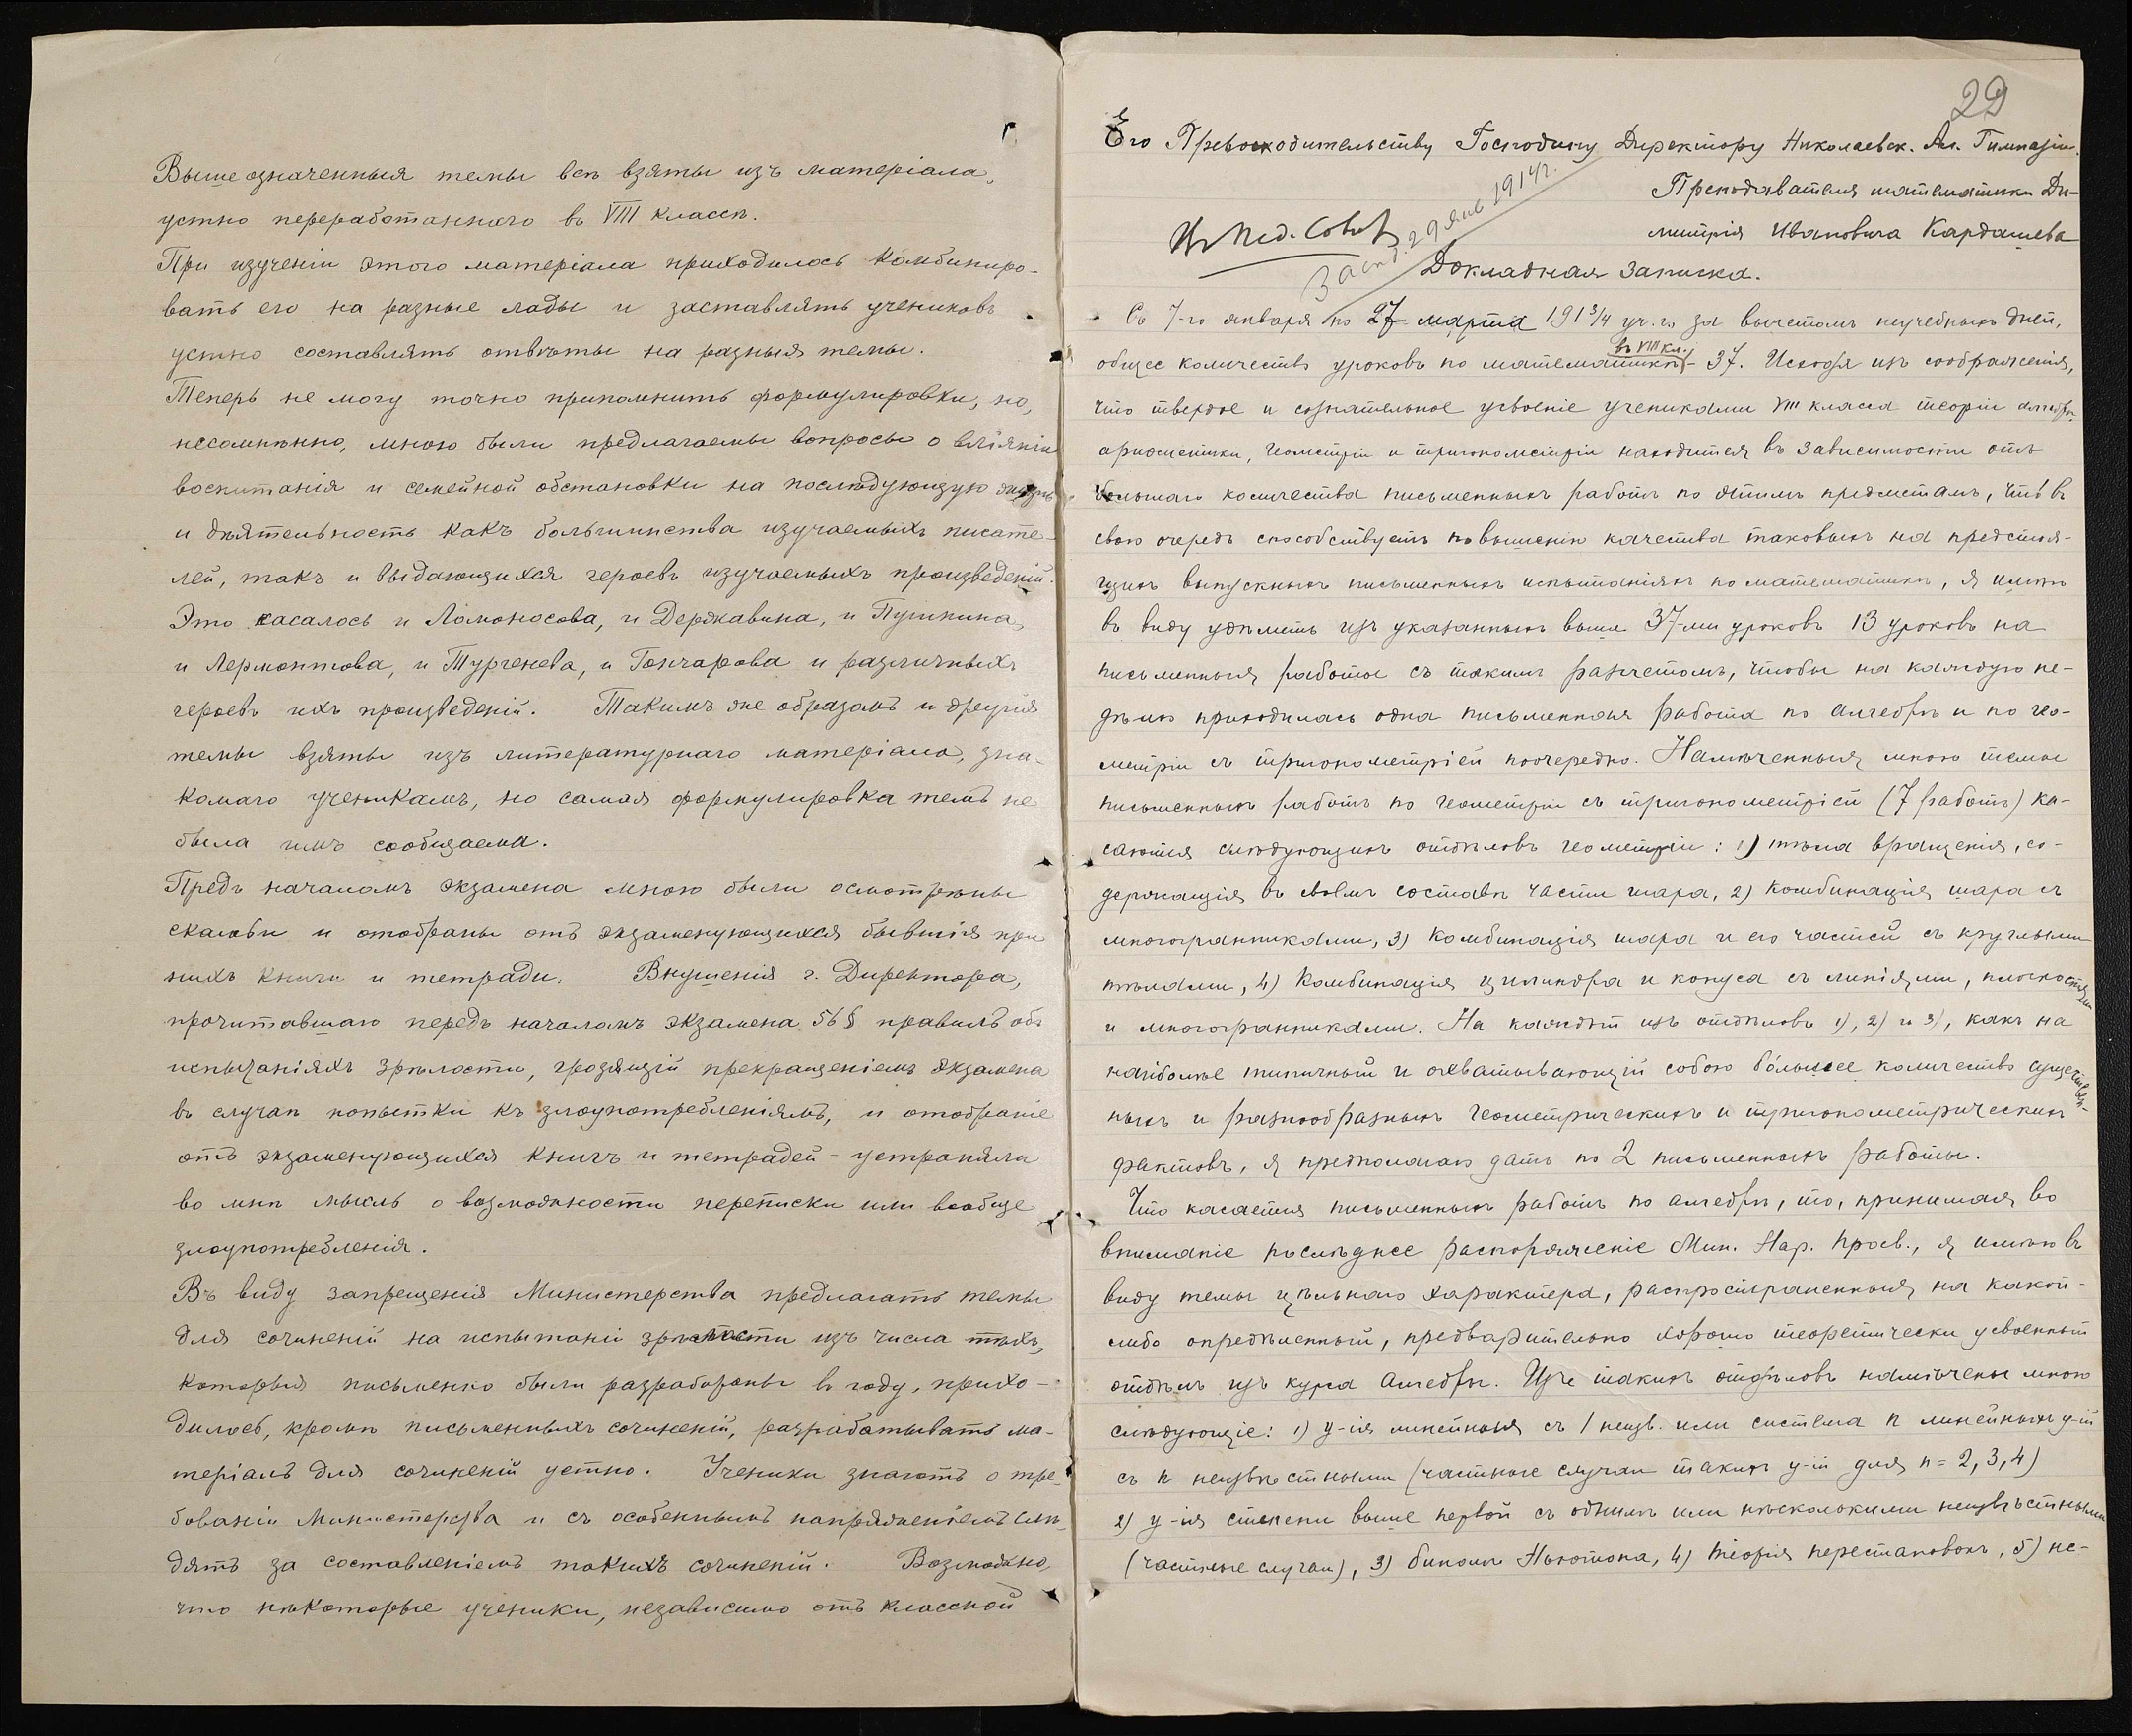 Вышеозначенныя темы всѣ взяты изъ матеріала,
устно переработаннаго въ VIII классѣ.
При изученіи этого матеріала приходилось комбиниро-
вать его на разные лады и заставлять учениковъ
устно составлять отвѣты на разныя темы.
Теперь не могу точно припомнить формулировки, но,
несомнѣнно, мною были предлагаемы вопросы о вліяніи
воспитанія и семейной обстановки на послѣдующую жизнь
и дѣятельность какъ большинства изучаемыхъ писате-
лей, такъ и выдающихся героевъ изучаемыхъ произведеній.
Это касалось и Ломоносова, и Державина, и Пушкина,
и Лермонтова, и Тургенева, и Гончарова и различныхъ
героевъ ихъ произведеній. Такимъ же образомъ и другія
темы взяты изъ литературнаго матеріала, зна-
комаго ученикамъ, но самая формулировка темъ не
была имъ сообщаема.
Предъ началомъ экзамена мною были осмотрѣны
скамьи и отобраны отъ экзаменующихся бывшія при
нихъ книги и тетради. Внушенія г. Директора,
прочитавшаго передъ началомъ экзамена 56 § правилъ объ
испытаніяхъ зрѣлости, грозящій прекращеніемъ экзамена
въ случаѣ попытки къ злоупотребленіямъ, и отобраніе
отъ экзаменующихся книгъ и тетрадей - устраняли
во мнѣ мысль о возможности переписки или вообще
злоупотребленія.
Въ виду запрещенія Министерства предлагать темы
для сочиненій на испытаніи зрѣлости изъ числа тѣхъ,
которыя письменно были разработаны въ году, прихо-
дилось, кромѣ письменныхъ сочиненій, разрабатывать ма-
теріалъ для сочиненій устно. Ученики знаютъ о тре-
бованіи Министерства и съ особеннымъ напряженіемъ слѣ-
дятъ за составленіемъ такихъ сочиненій. Возможно,
что нѣкоторые ученики, независимо отъ классной
29
Его Превосходительству Господину Директору Николаевск. Ал. Гимназіи.
Преподавателя математики Ди-
митрія Ивановича Кардашева
Въ Пед. Совѣт
Засѣд. 29 янв 1914 г.
Докладная записка.
Съ 7-го января по 27 марта 1913/4 уч. г. за вычетомъ неучебныхъ дней,
въ VIII кл.
общее количество уроковъ по математикѣ - 37. Исходя изъ соображенія,
что твердое и сознательное усвоеніе учениками VIII класса теоріи алгебры,
ариѳметики, геометріи и тригонометріи находится въ зависимости отъ
большаго количества письменныхъ работъ по этимъ предметамъ, что въ
свою очередь способствуетъ повышенію качества таковыхъ на предстоя-
щихъ выпускныхъ письменныхъ испытаніяхъ по математикѣ, я имѣю
въ виду удѣлить изъ указанныхъ выше 37-ми уроковъ 13 уроковъ на
письменныя работы съ такимъ разчетомъ, чтобы на каждую не-
дѣлю приходилась одна письменная работа по алгебрѣ и по гео-
метріи съ тригонометріей поочередно. Намѣченныя мною темы
письменныхъ работъ по геометріи съ тригонометріей (7 работъ) ка-
саются слѣдующихъ отдѣловъ геометріи: 1) тѣла вращенія, со-
держащія въ своемъ составѣ части шара, 2) комбинація шара съ
многогранниками, 3) комбинація шара и его частей съ круглыми
тѣлами, 4) комбинація цилиндра и конуса съ линіями, плоскостями
и многогранниками. На каждый изъ отдѣловъ 1), 2) и 3), какъ на
наиболѣе типичный и охватывающій собою бо́льшее количество существен-
ныхъ и разнообразныхъ геометрическихъ и тригонометрическихъ
фактовъ, я предполагаю дать по 2 письменныхъ работы.
Что касается письменныхъ работъ по алгебрѣ, то, принимая во
вниманіе послѣднее распоряженіе Мин. Нар. Просв., я имѣю въ
виду темы цѣльнаго характера, распространенныя на какой-
либо опредѣленный, предварительно хорошо теоретически усвоенный
отдѣлъ изъ курса алгебры. Изъ такихъ отдѣловъ намѣчены мною
слѣдующіе: 1) у-ія линейныя съ 1 неизв. или система n линейныхъ у-ій
съ n неизвѣстными (частные случаи такихъ у-ій для n = 2, 3, 4)
2) у-ія степени выше первой съ однимъ или нѣсколькими неизвѣстными
(частные случаи), 3) биномъ Ньютона, 4) теорія перестановокъ, 5) не-